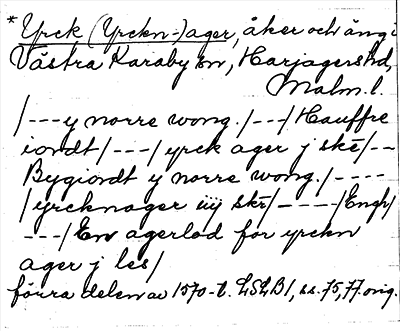 *Yrck (Yrckn-)ager, åker och äng i
Västra Karaby sn, Harjagers hd,
Malm. l.
/---y norre wong. /---/ Hauffre
iordt /---/ yrck ager j skē /--
Bygiordt y norre wong. /----
/yrcknager iiij skē /----/ Engh/
---/ En agerlod for yrckn
ager j les/
förra delen av 1570-t. LSLB1, ss. 75, 77. orig.